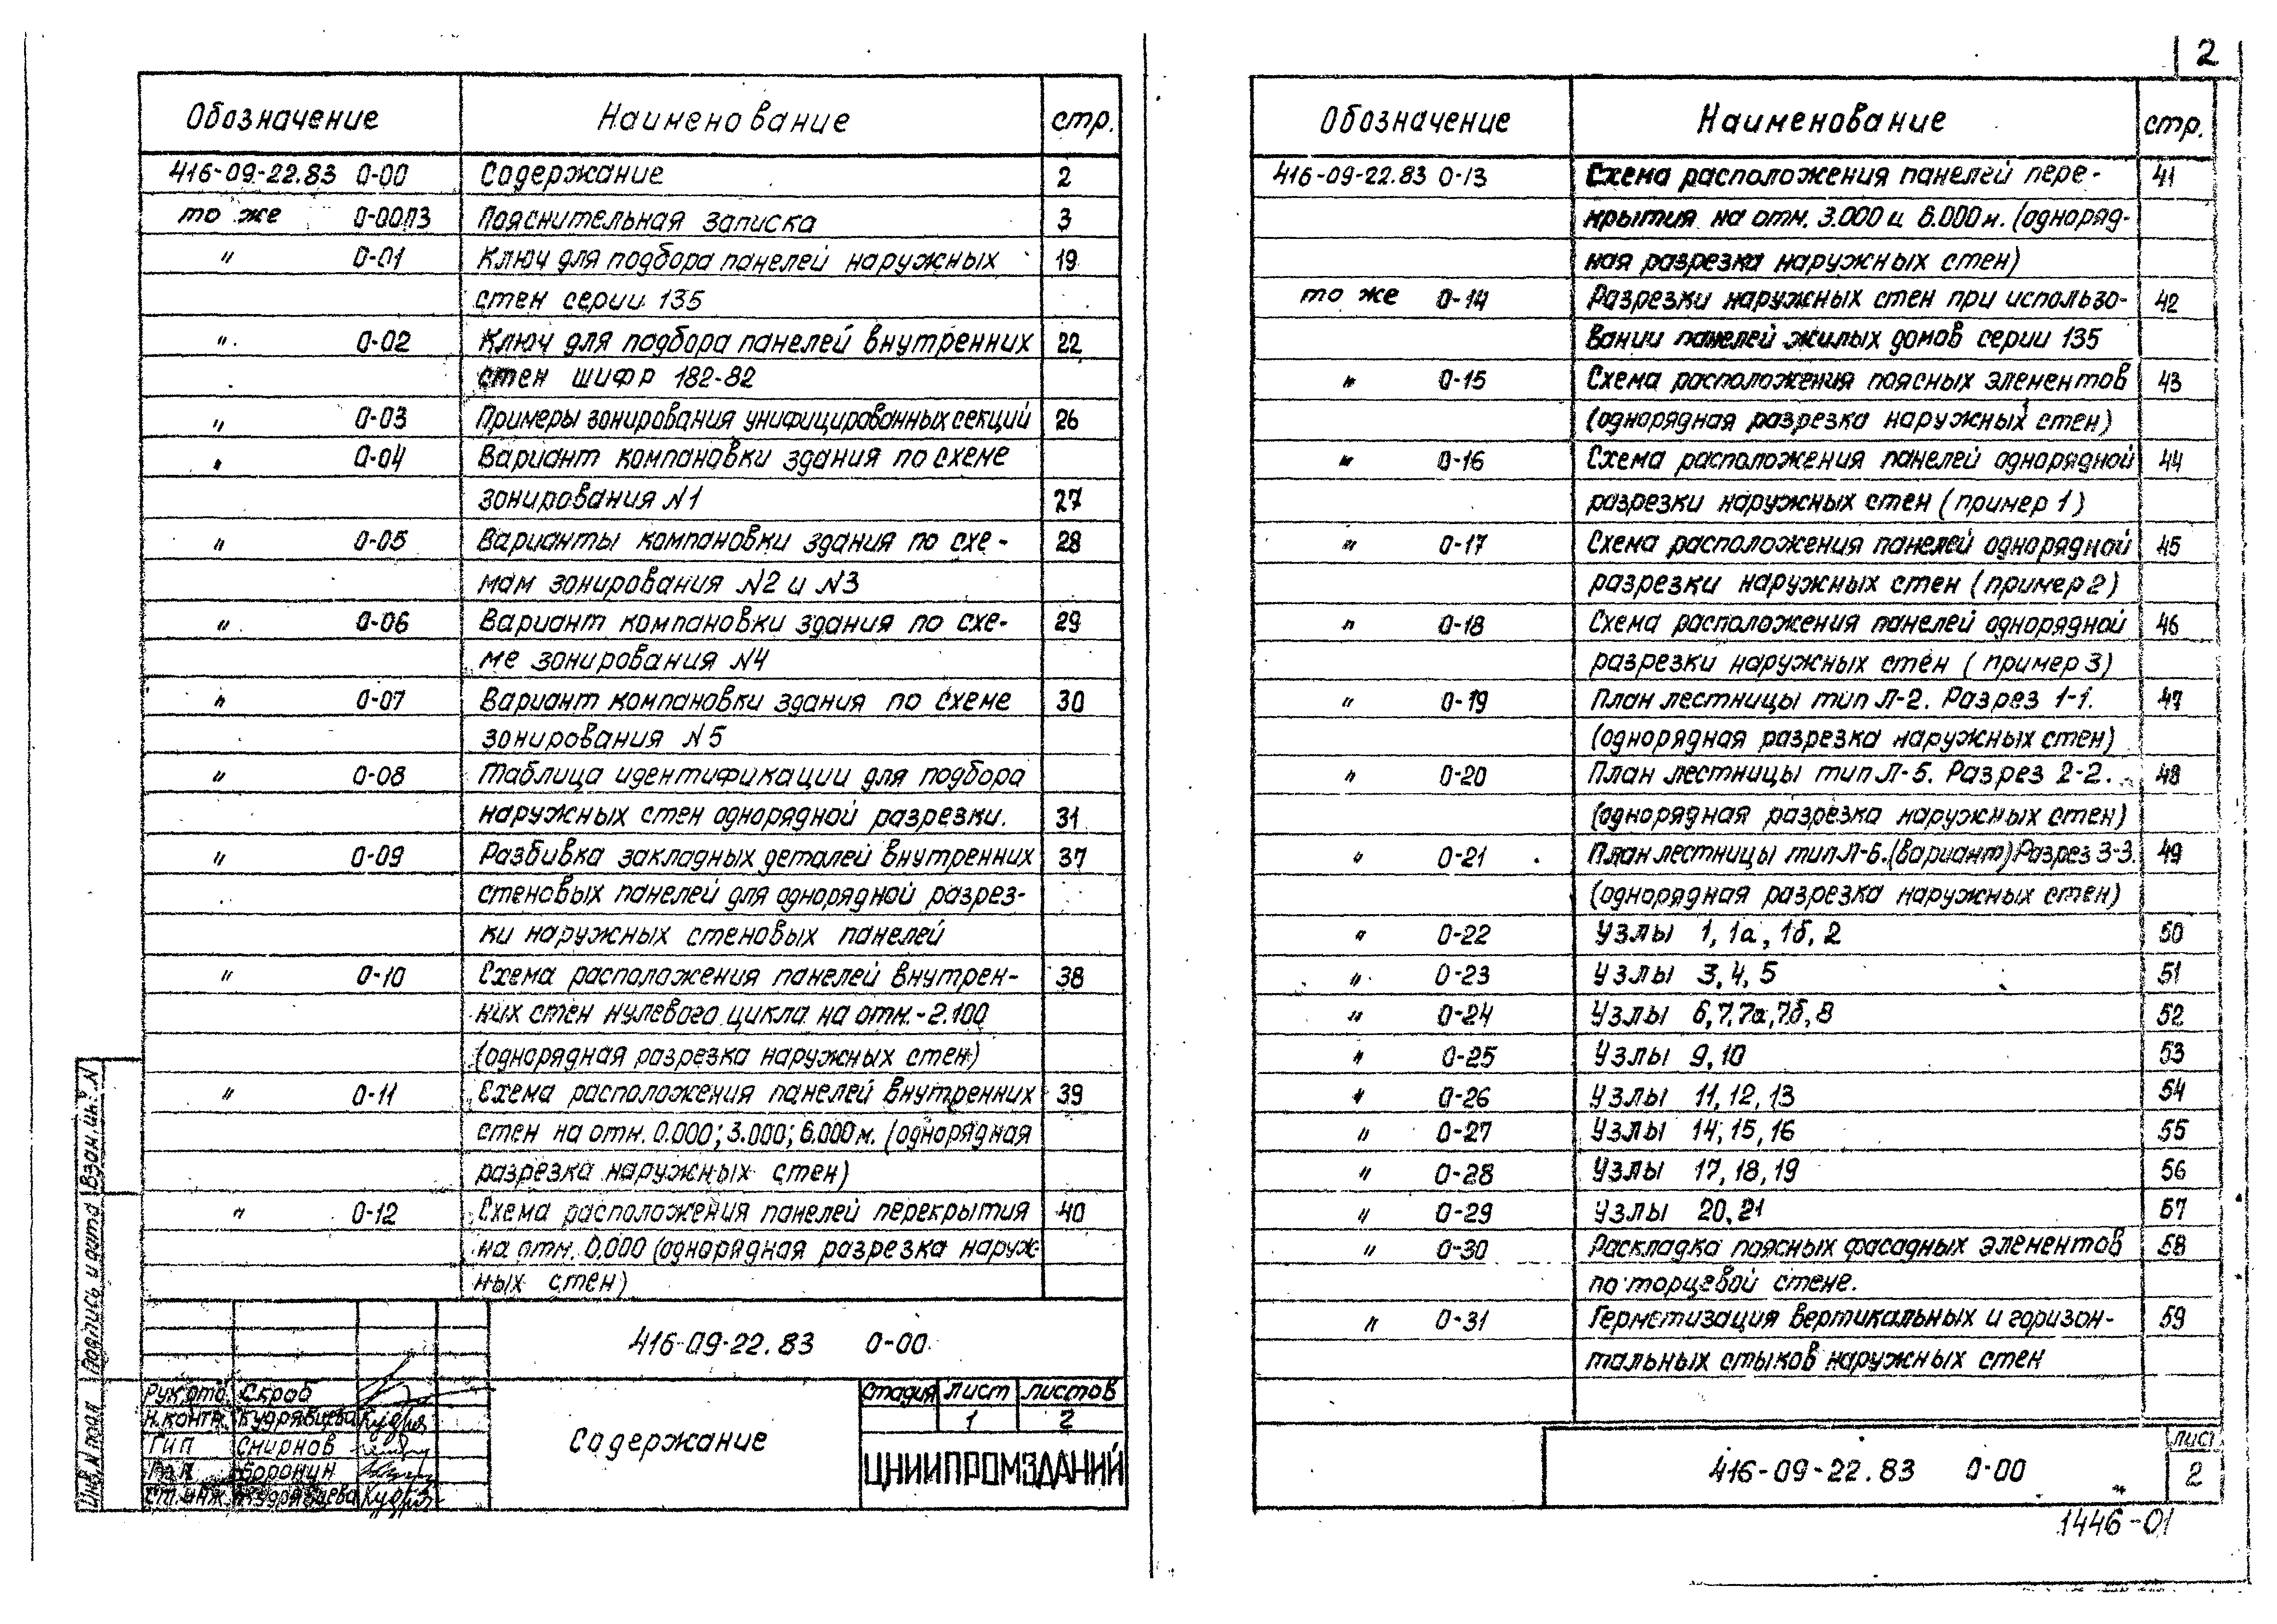 2
Обозначение Наименование стр.
416-09-22.83 0-00 Содержание 2
то же 0-00ПЗ Пояснительная записка 3
" 0-01 Ключ для подбора панелей наружных 19
стен серии 135
" 0-02 Ключ для подбора панелей внутренних 22
стен шифр 182-82
" 0-03 Примеры зонирования унифицированных секций 26
" 0-04 Вариант компановки здания по схеме
зонирования N1 27
" 0-05 Варианты компановки здания по схе- 28
мам зонирования N2 и N3
" 0-06 Вариант компановки здания по схе- 29
ме зонирования N4
" 0-07 Вариант компановки здания по схеме 30
зонирования N5
" 0-08 Таблица идентификации для подбора
наружных стен однорядной разрезки. 31
" 0-09 Разбивка закладных деталей внутренних 37
стеновых панелей для однорядной разрез-
ки наружных стеновых панелей
" 0-10 Схема расположения панелей внутрен- 38
них стен нулевого цикла на отм.-2.100
(однорядная разрезка наружных стен)
" 0-11 Схема расположения панелей внутренних 39
стен на отм. 0.000; 3.000; 6.000м. (однорядная
разрезка наружных стен)
" 0-12 Схема расположения панелей перекрытия 40
на отм. 0.000 (однорядная разрезка наруж-
ных стен)
416-09-22.83 0-00
Рук.отд. Скроб
Н.контр. Кудрявцева
ГИП Смирнов
Боронин
Ст.инж. Кудрявцева
Содержание
стадия лист листов
1 2
ЦНИИПРОМЗДАНИЙ
Инв.N подл. Подпись и дата Взам.ин.N
Обозначение Наименование стр.
416-09-22.83 0-13 Схема расположения панелей пере- 41
крытия на отм. 3.000 и 6.000м. (одноряд-
ная разрезка наружных стен)
то же 0-14 Разрезки наружных стен при использо- 42
вании панелей жилых домов серии 135
" 0-15 Схема расположения поясных элементов 43
(однорядная разрезка наружных стен)
" 0-16 Схема расположения панелей однорядной 44
разрезки наружных стен (пример 1)
" 0-17 Схема расположения панелей однорядной 45
разрезки наружных стен (пример 2)
" 0-18 Схема расположения панелей однорядной 46
разрезки наружных стен (пример 3)
" 0-19 План лестницы тип Л-2. Разрез 1-1. 47
(однорядная разрезка наружных стен)
" 0-20 План лестницы тип Л-5. Разрез 2-2. 48
(однорядная разрезка наружных стен)
" 0-21 План лестницы тип Л-6.(вариант) Разрез 3-3. 49
(однорядная разрезка наружных стен)
" 0-22 Узлы 1, 1а, 1б, 2 50
" 0-23 Узлы 3, 4, 5 51
" 0-24 Узлы 6, 7, 7а, 7б, 8 52
" 0-25 Узлы 9, 10 53
" 0-26 Узлы 11, 12, 13 54
" 0-27 Узлы 14, 15, 16 55
" 0-28 Узлы 17, 18, 19 56
" 0-29 Узлы 20, 21 57
" 0-30 Раскладка поясных фасадных элементов 58
по торцевой стене.
" 0-31 Герметизация вертикальных и горизон- 59
тальных стыков наружных стен
416-09-22.83 0-00
лист
2
1446-01